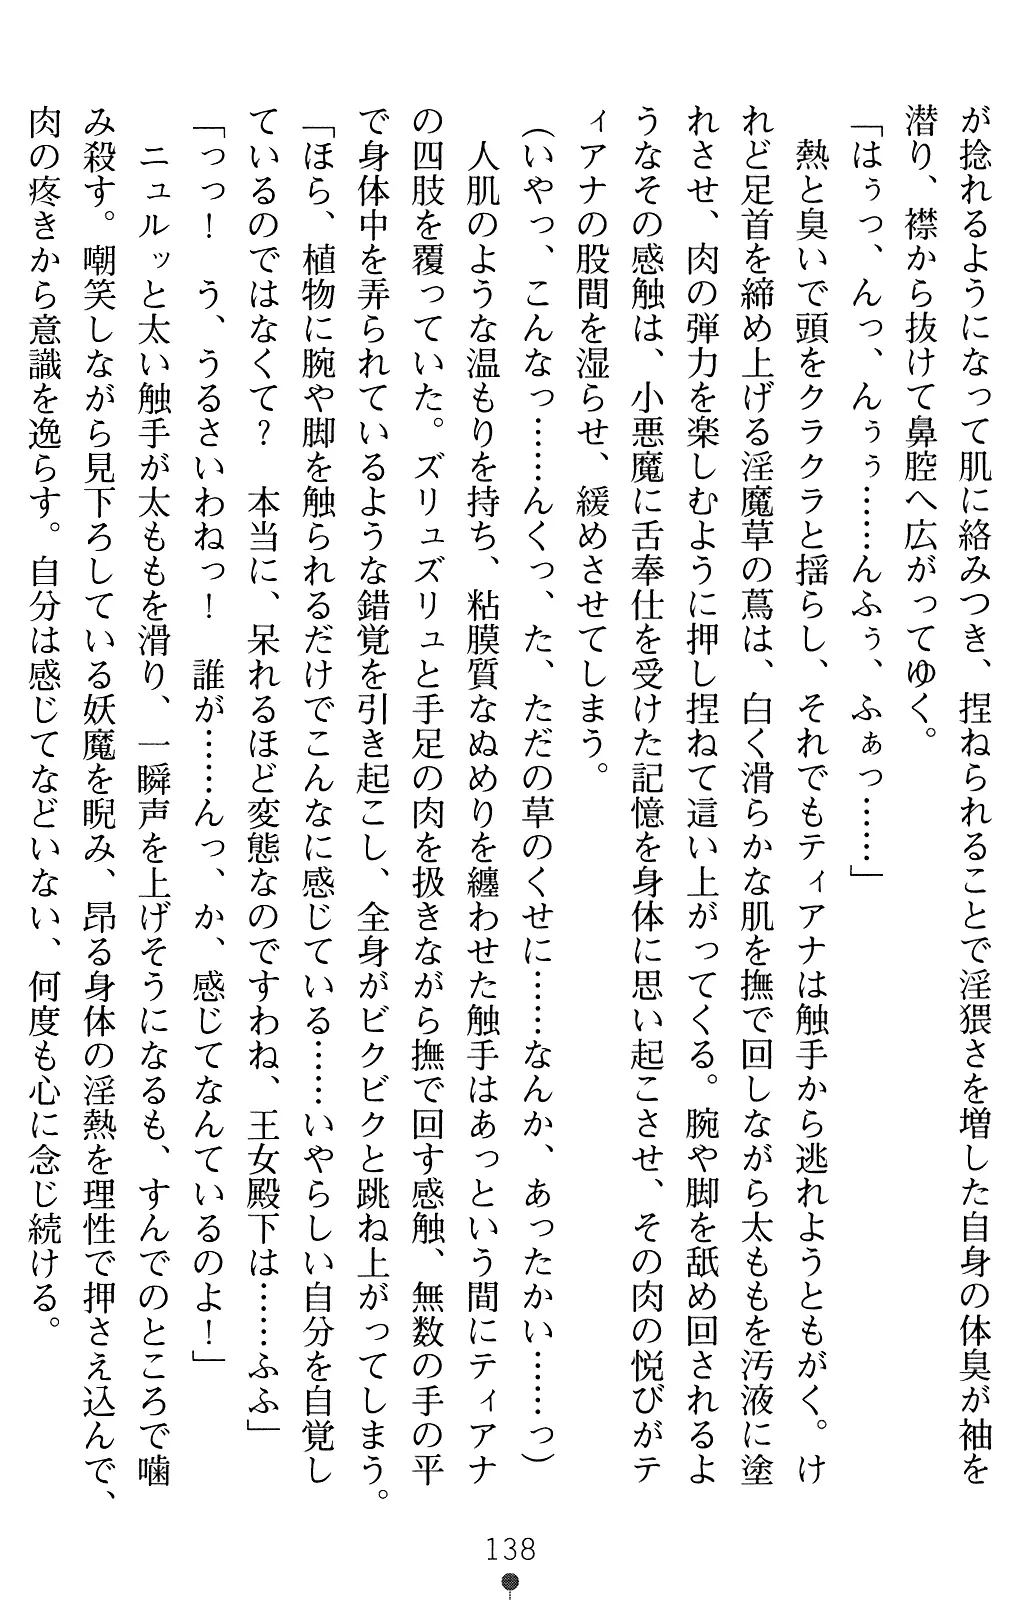 が捻れるようになって肌に絡みつき、捏ねられることで淫猥さを増した自身の体臭が袖を
潜り、襟から抜けて鼻腔へ広がってゆく。
「はぅっ、んっ、んぅぅ……んふぅ、ふぁっ……」
　熱と臭いで頭をクラクラと揺らし、それでもティアナは触手から逃れようともがく。け
れど足首を締め上げる淫魔草の蔦は、白く滑らかな肌を撫で回しながら太ももを汚液に塗
れさせ、肉の弾力を楽しむように押し捏ねて這い上がってくる。腕や脚を舐め回されるよ
うなその感触は、小悪魔に舌奉仕を受けた記憶を身体に思い起こさせ、その肉の悦びがテ
ィアナの股間を湿らせ、緩めさせてしまう。
（いやっ、こんなっ……んくっ、た、ただの草のくせに……なんか、あったかい……っ）
　人肌のような温もりを持ち、粘膜質なぬめりを纏わせた触手はあっという間にティアナ
の四肢を覆っていた。ズリュズリュと手足の肉を扱きながら撫で回す感触、無数の手の平
で身体中を弄られているような錯覚を引き起こし、全身がビクビクと跳ね上がってしまう。
「ほら、植物に腕や脚を触られるだけでこんなに感じている……いやらしい自分を自覚し
ているのではなくて？　本当に、呆れるほど変態なのですわね、王女殿下は……ふふ」
「っっ！　う、うるさいわねっ！　誰が……んっ、か、感じてなんているのよ！」
　ニュルッと太い触手が太ももを滑り、一瞬声を上げそうになるも、すんでのところで噛
み殺す。嘲笑しながら見下ろしている妖魔を睨み、昂る身体の淫熱を理性で押さえ込んで、
肉の疼きから意識を逸らす。自分は感じてなどいない、何度も心に念じ続ける。
138